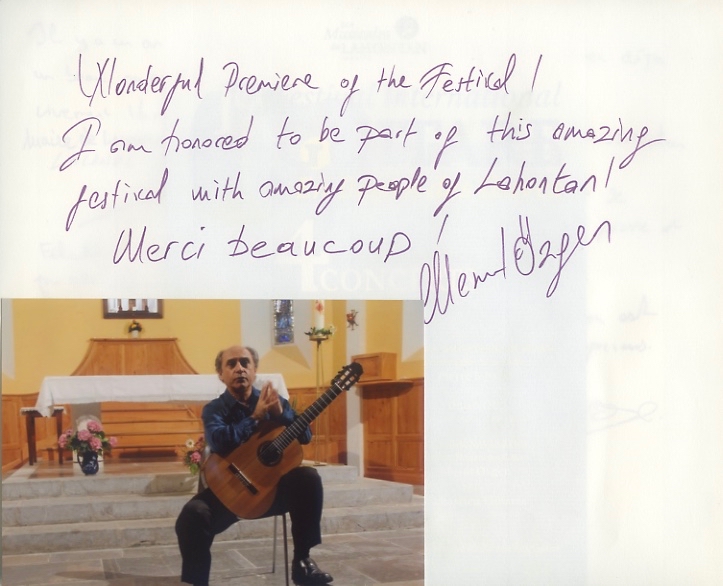 Wonderful Premiere of the Festival !
I am honored to be part of this amazing
festival with amazing people of Lahontan !
Merci beaucoup !
Özgen